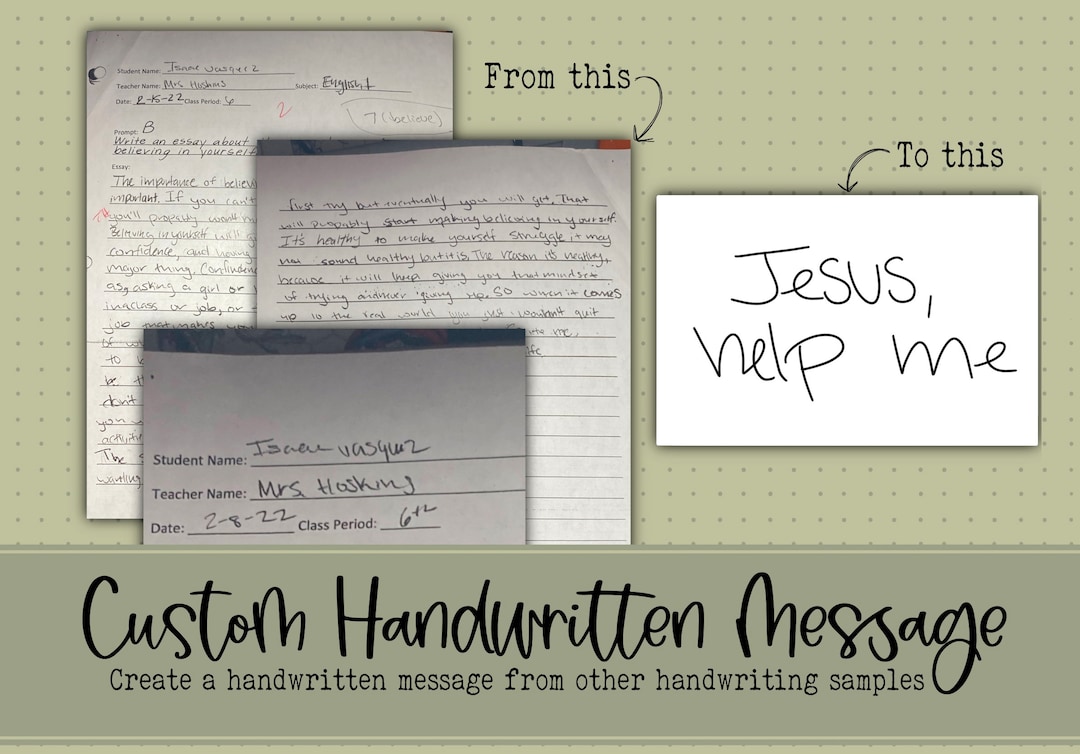 From this
To this
Student Name: Isaac Vasquez
Teacher Name: Mrs Hoskins
Subject: English 1
Date: 2-15-22 Class Period: 6
2
7 (believe)
Prompt: B
Write an essay about
believing in yourself
Essay:
The importance of believ
important. If you can't
you'll properly
Believing in yourself will g
confidence, and having
major thing. Confindenc
as, asking a girl or
in a class or job, or
job that makes
Of
to
be
don't
you
activitie
The
wanting
first try but eventually you will get. That
will propably start making believing in yourself.
It's healthy to make yourself struggle, it may
not sound healthy but it is. The reason its healthy,
because it will keep giving you that mindset
of trying and never "giving" up. SO when it comes
up to the real world you just wouldn't quit
Student Name: Isaac Vasquez
Teacher Name: Mrs. Hoskins
Date: 2-8-22 Class Period: 6th
Jesus,
help me
Custom Handwritten Message
Create a handwritten message from other handwriting samples